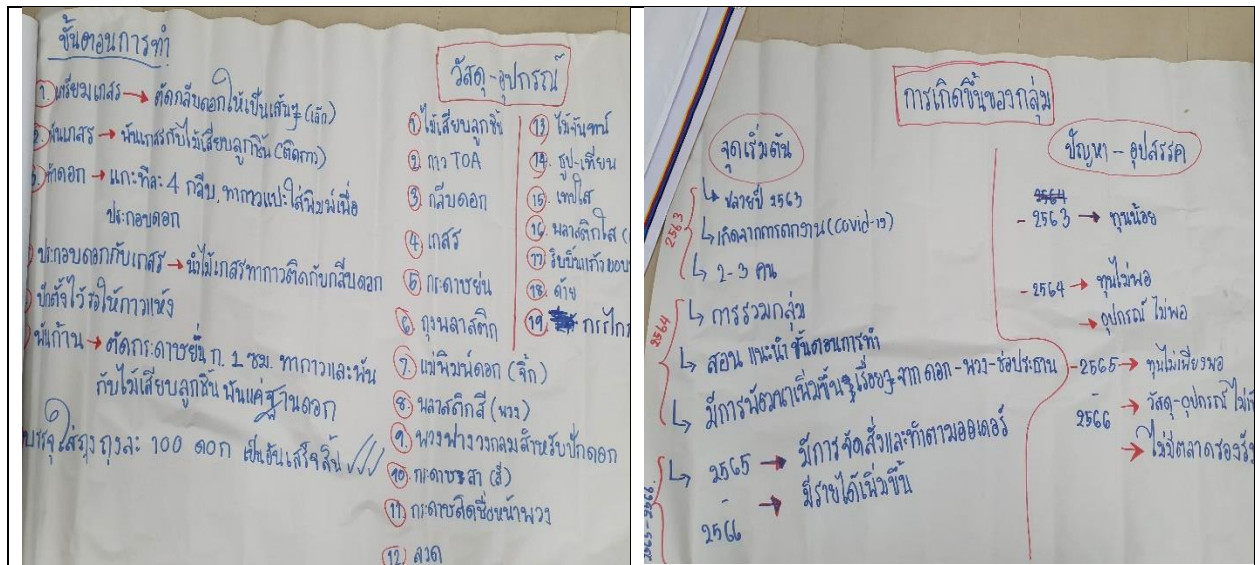 ขั้นตอนการทำ
1. เตรียมเกสร → ตัดกลีบดอกให้เป็นเส้นๆ (เล็ก)
2. พันเกสร → พันเกสรกับไม้เสียบลูกชิ้น (ติดกาว)
→ แกะทีละ 4 กลีบ, ทากาวแปะใส่พิมพ์เพื่อ
ประกอบดอก
ประกอบดอกกับเกสร → นำไม้เกสรทากาวติดกับกลีบดอก
ปักตั้งไว้รอให้กาวแห้ง
พันก้าน → ตัดกระดาษย่น ก. 1 ซม. ทากาวและพัน
กับไม้เสียบลูกชิ้น พันแค่ฐานดอก
บรรจุใส่ถุง ถุงละ 100 ดอก เป็นอันเสร็จสิ้น ✓✓✓
วัสดุ-อุปกรณ์
1 ไม้เสียบลูกชิ้น
2. กาว TOA
3. กลีบดอก
4. เกสร
5 กระดาษย่น
6 ถุงพลาสติก
7. แม่พิมพ์ดอก (จิ๊ก)
8. พลาสติกสี (พวง)
9. พวงฟางวงกลมสำหรับปักดอก
10. กระดาษสา (สี)
11. กระดาษติดชื่อหน้าพวง
12. ลวด
13 ไม้จันทน์
14. ธูป-เทียน
15. เทปใส
16. พลาสติกใส (
17. ริบบิ้นแก้ว
18. ด้าย
19.
การเกิดขึ้นของกลุ่ม
จุดเริ่มต้น
2563
ปลายปี 2563
เกิดจากการตกงาน (covid-19)
2-3 คน
2564
การรวมกลุ่ม
สอน แนะนำ ขั้นตอนการทำ
มีการพัฒนาเพิ่มขึ้นเรื่อยๆ จาก ดอก-พวง-ช่อประธาน
2565-2566
2565 → มีการจัดสั่งและทำตามออเดอร์
-
2566 → มีรายได้เพิ่มขึ้น
ปัญหา - อุปสรรค
2564
- 2563 → ทุนน้อย
- 2564 → ทุนไม่พอ
→ อุปกรณ์ ไม่พอ
- 2565 → ทุนไม่เพียงพอ
-
2566 → วัสดุ-อุปกรณ์
→ ไม่มีตลาดรองรับ